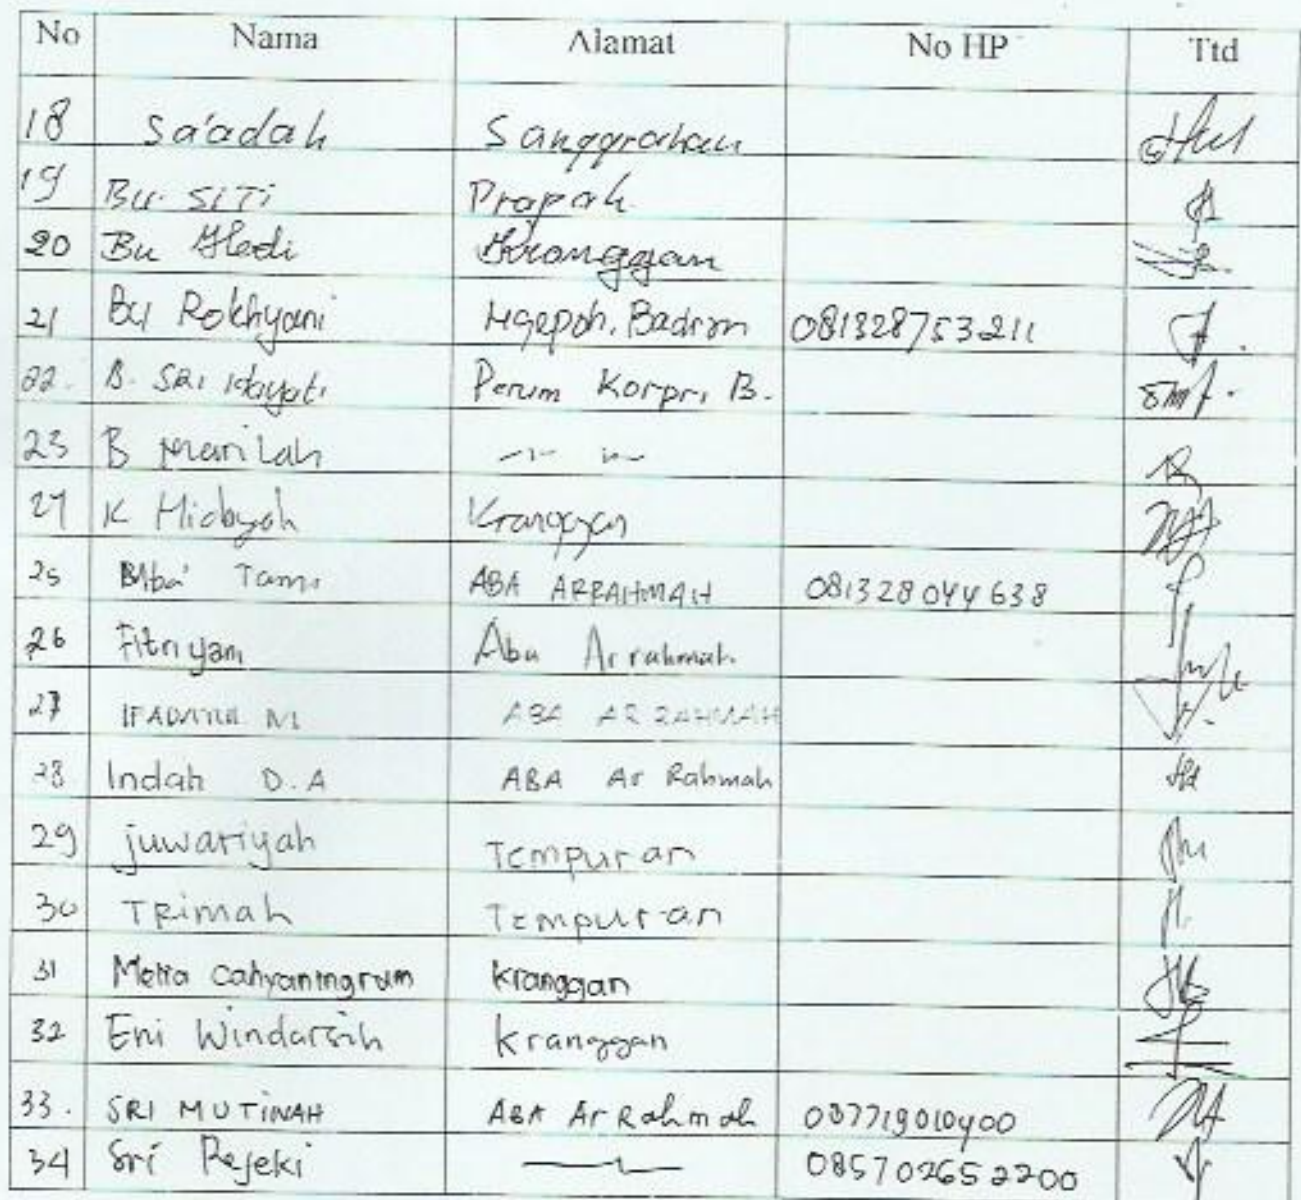 No Nama Alamat No HP Ttd
18 Sa'adah Sanggrahan
19 Bu. SITI Prapak
20 Bu Hedi Kranggan
21 Bu Rokhyani Ngepoh, Badran 081328753211
22. B. SRI Hayati Perum Korpri B.
23 B Marilah
24 K Hidayah Kranggan
25 Mba' Tami ABA ARRAHMAH 081328044638
26 Fitriyani Aba Arrahmah
27 M ABA ARRAHMAH
28 Indah D.A ABA Ar Rahmah
29 juwariyah Tempuran
30 TRimah Tempuran
31 Metta Cahyaningrum Kranggan
32 Eni Windarsih Kranggan
33. SRI MUTINAH ABA Ar Rahmah 087719010400
34 Sri Rejeki 085702652200